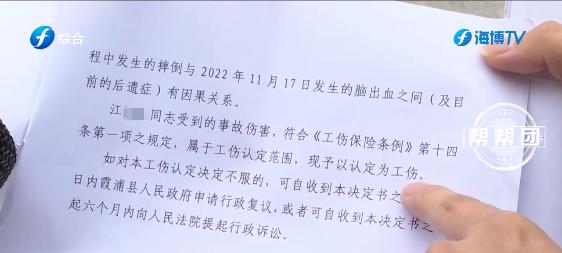 综合
海博TV
程中发生的摔倒与2022年11月17日发生的脑出血之间（及目
前的后遗症）有因果关系。
江 同志受到的事故伤害，符合《工伤保险条例》第十四
条第一项之规定，属于工伤认定范围，现予以认定为工伤。
如对本工伤认定决定不服的，可自收到本决定书之
日内霞浦县人民政府申请行政复议，或者可自收到本决定书之
起六个月内向人民法院提起行政诉讼。
帮帮团